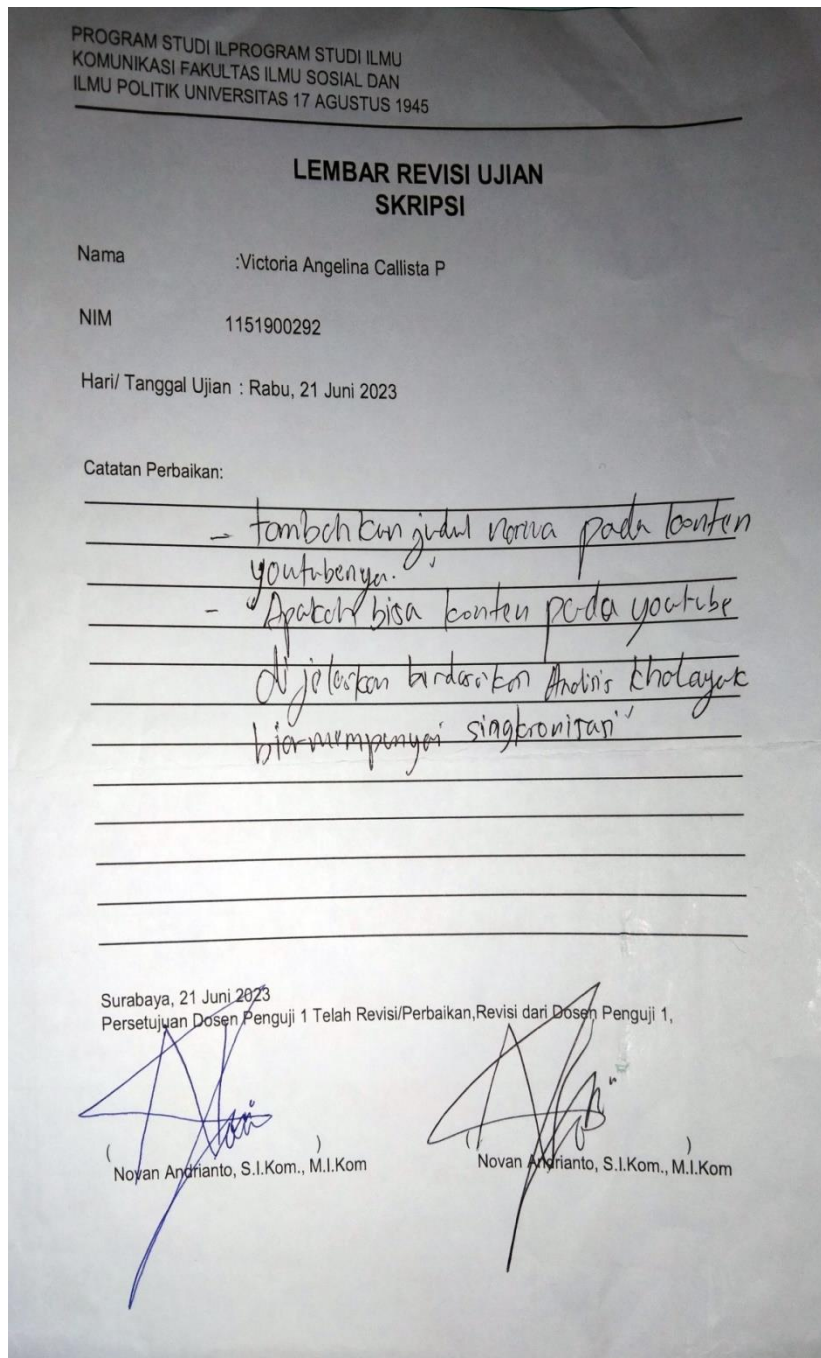 PROGRAM STUDI ILPROGRAM STUDI ILMU
KOMUNIKASI FAKULTAS ILMU SOSIAL DAN
ILMU POLITIK UNIVERSITAS 17 AGUSTUS 1945
LEMBAR REVISI UJIAN
SKRIPSI
Nama :Victoria Angelina Callista P
NIM 1151900292
Hari/ Tanggal Ujian : Rabu, 21 Juni 2023
Catatan Perbaikan:
- tambahkan judul pada konten
youtubenya.
- "Apakah bisa konten pada youtube
di jelaskan berdasarkan Analisis khalayak
biar mempunyai singkronisasi"
Surabaya, 21 Juni 2023
Persetujuan Dosen Penguji 1 Telah Revisi/Perbaikan,Revisi dari Dosen Penguji 1,
( ) ( )
Novan Andrianto, S.I.Kom., M.I.Kom Novan Andrianto, S.I.Kom., M.I.Kom